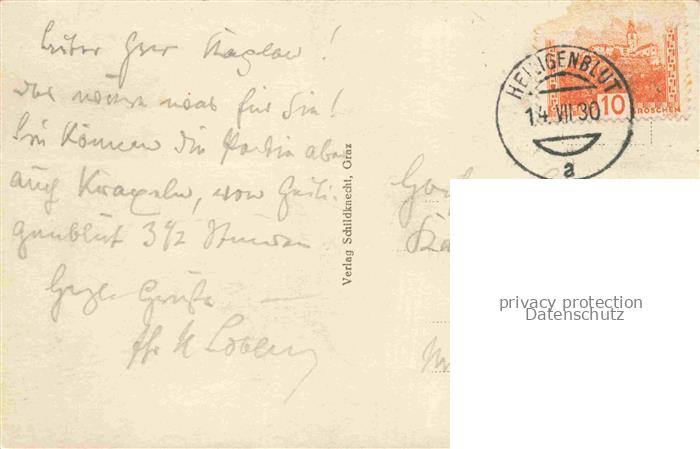 Lieber Herr
das wäre was für Sie!
Sie können die Partie aber
auch Kraxeln, von Heili-
genblut 3½ Stunden
Grüße
Verlag Schildknecht, Graz
HEILIGENBLUT
14. VII. 30
a
10
GROSCHEN
privacy protection
Datenschutz